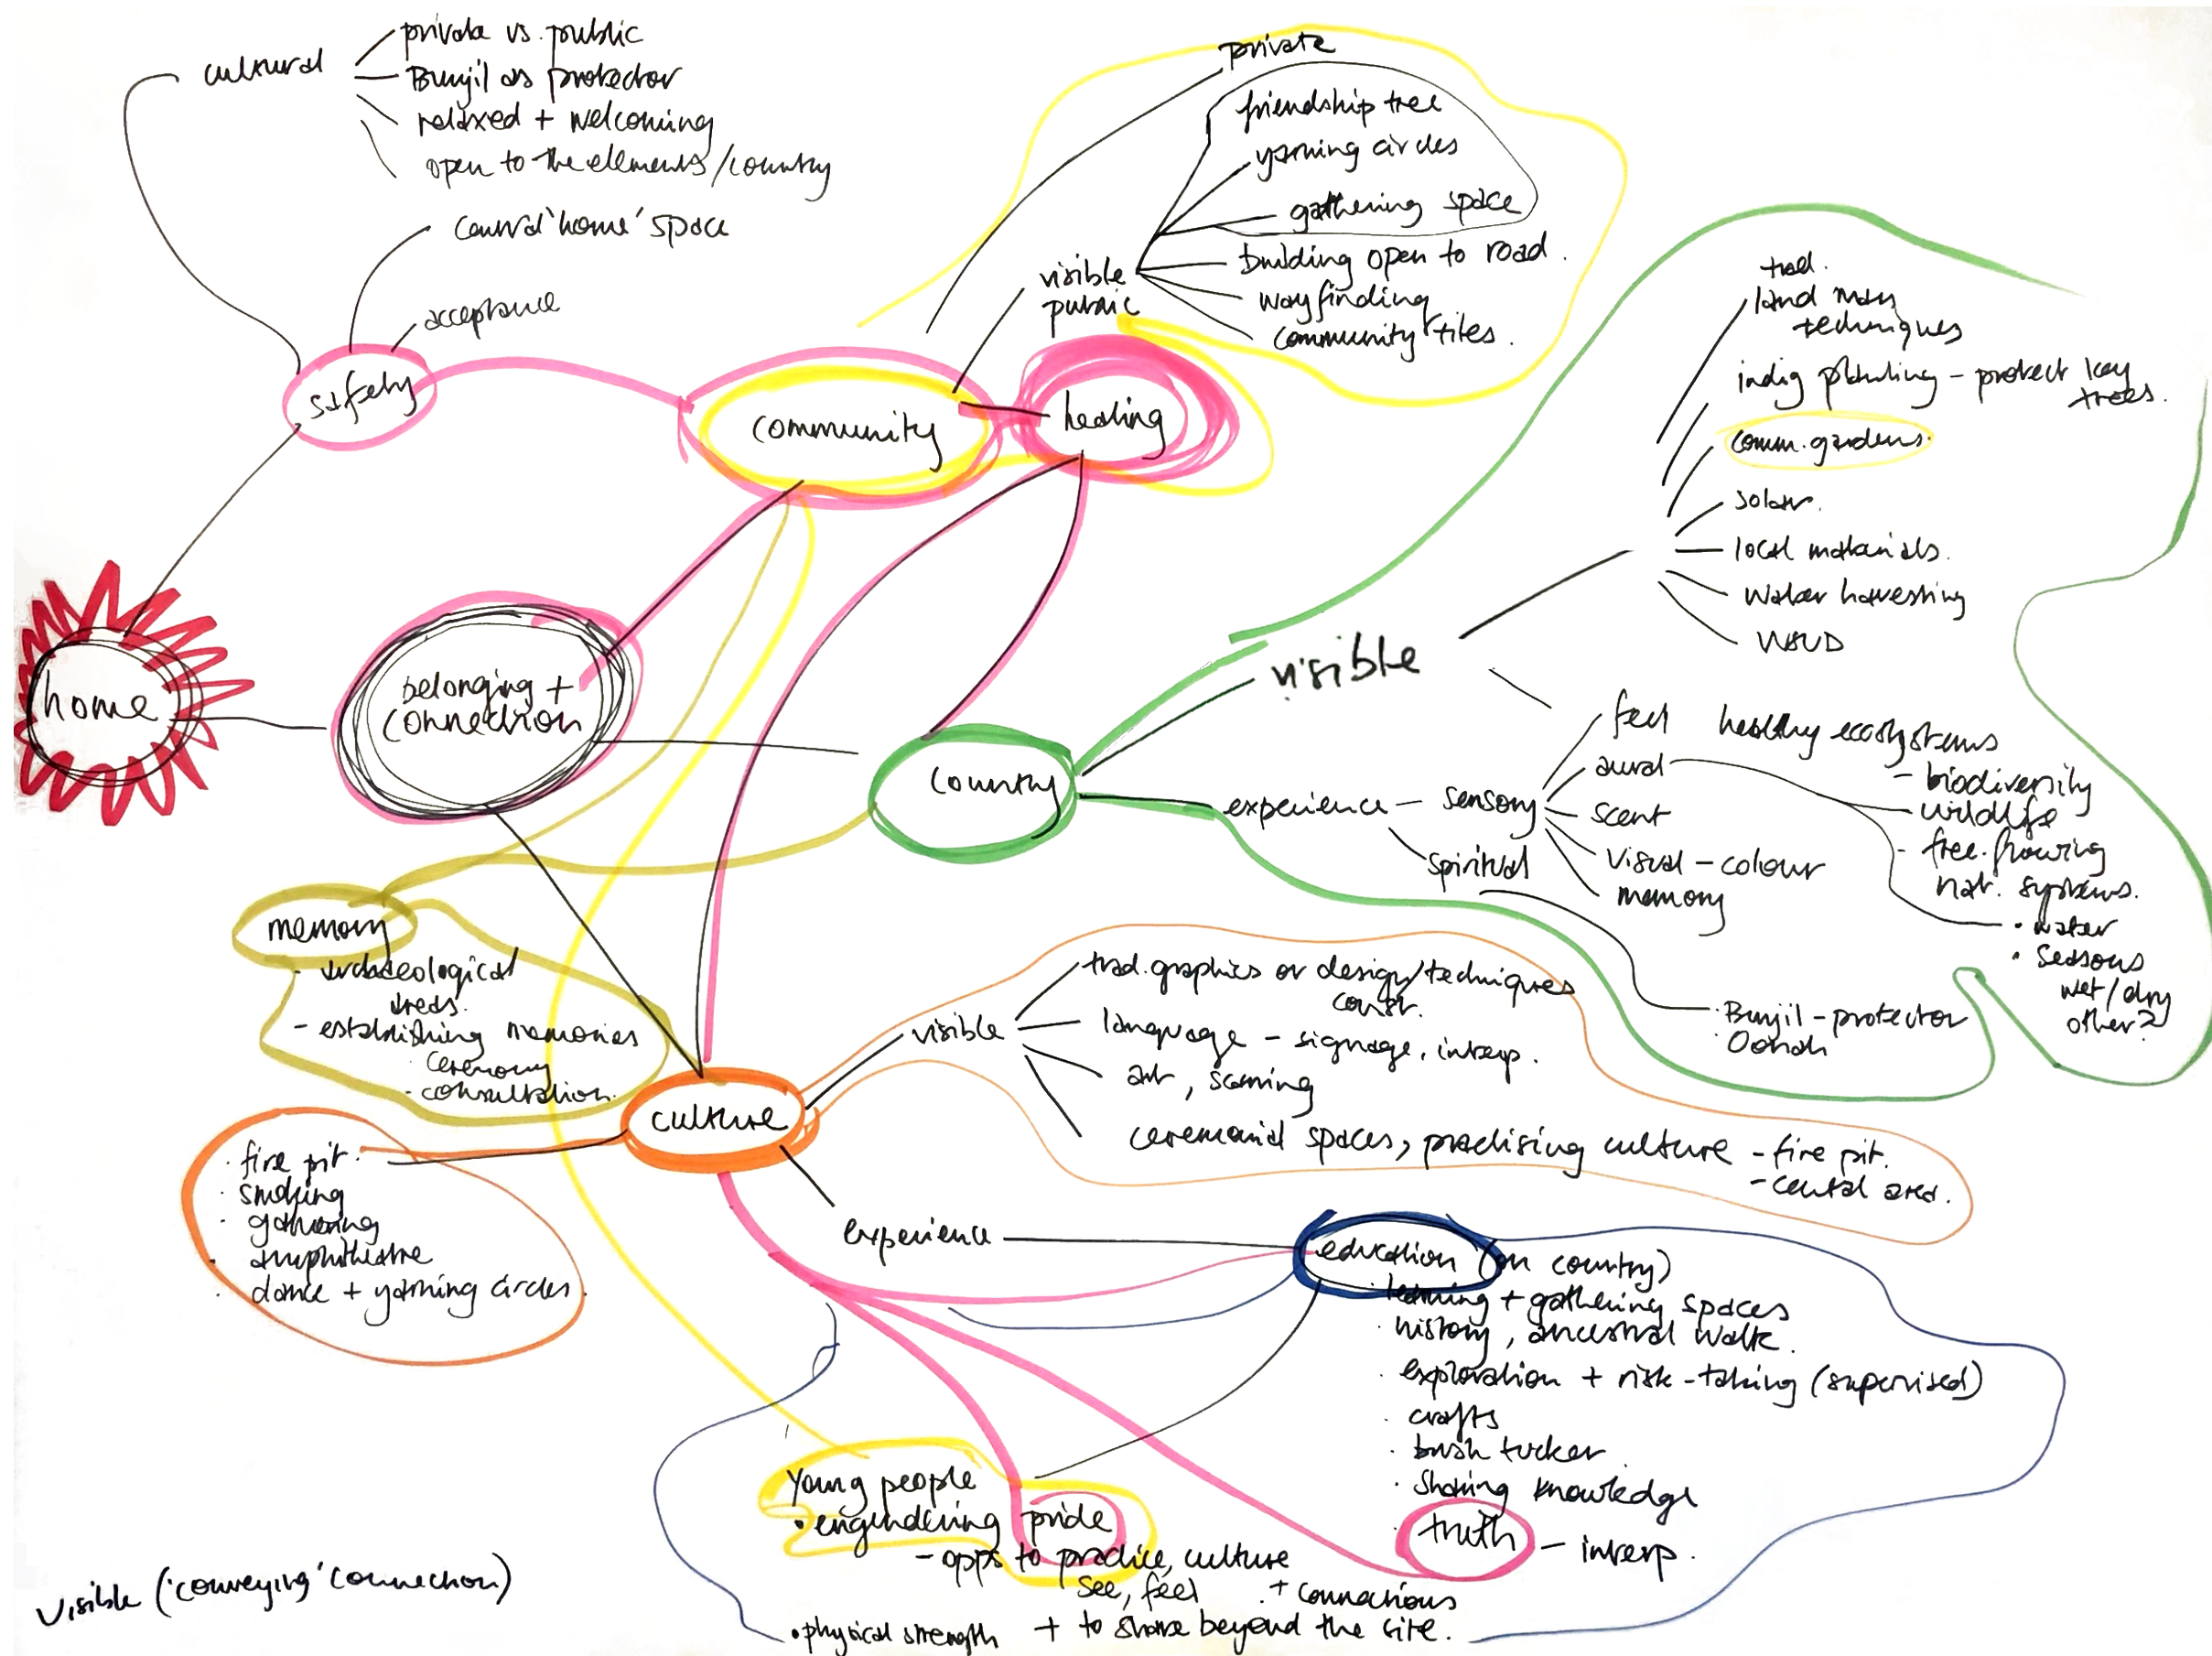 cultural
private vs. public
Bunjil as protector
relaxed + welcoming
open to the elements/country
central 'home' space
acceptance
safety
private
friendship tree
yarning circles
gathering space
building open to road.
wayfinding
community tiles.
visible
public
community
healing
home
belonging +
connection
country
visible
trad.
land man
techniques
indig planting - protect key
trees.
comm. gardens.
solar.
local materials.
water harvesting
WSUD
experience - sensory
feel
aural
scent
visual - colour
memory
healthy ecosystems
- biodiversity
- wildlife
- free-flowing
nat. systems.
• water
• seasons
wet/dry
other?
spiritual
· Bunjil - protector
memory
- archaeological
areas.
- establishing memories
· ceremony
- consultation.
culture
visible
trad. graphics or design/techniques
const.
language - signage, interp.
art,
ceremonial spaces, practising culture - fire pit.
- central area.
· fire pit.
· smoking
· gathering
· amphitheatre
· dance + yarning circles.
experience
education (on country)
· learning + gathering spaces
· history, ancestral walk.
· exploration + risk-taking (supervised)
· crafts
· bush tucker
· sharing knowledge
truth - interp.
young people
• engendering pride
- opps to practice, culture
see, feel + connections
• physical strength + to share beyond the site.
visible ('conveying' connection)